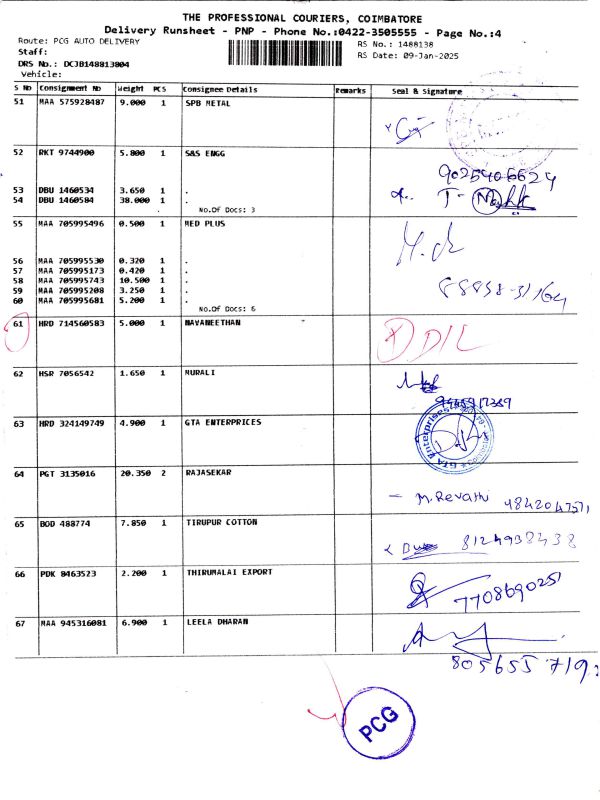 THE PROFESSIONAL COURIERS, COIMBATORE
Delivery Runsheet - PNP - Phone No.:0422-3505555 - Page No.:4
Route: PCG AUTO DELIVERY
RS No.: 1488138
Staff:
RS Date: 09-Jan-2025
DRS No.: DCJB148813804
Vehicle:
S No Consignment No Weight PCS Consignee Details Remarks Seal & Signature
51 MAA 575928487 9.000 1 SPB METAL
52 RKT 9744900 5.800 1 S&S ENGG
9025406624
53 DBU 1460534 3.650 1 .
54 DBU 1460584 38.000 1 .
No.Of Docs: 3
55 MAA 705995496 0.500 1 MED PLUS
56 MAA 705995530 0.320 1 .
57 MAA 705995173 0.420 1 .
58 MAA 705995743 10.500 1 .
59 MAA 705995208 3.250 1 .
60 MAA 705995681 5.200 1 .
No.Of Docs: 6
61 HRD 714560583 5.000 1 NAVANEETHAN
D/L
62 HSR 7056542 1.650 1 MURALI
63 HRD 324149749 4.900 1 GTA ENTERPRICES
GTA Enterprises
64 PGT 3135016 20.350 2 RAJASEKAR
- M.Revathi
65 BOD 488774 7.850 1 TIRUPUR COTTON
8124938438
66 PDK 8463523 2.200 1 THIRUMALAI EXPORT
7708690251
67 MAA 945316081 6.900 1 LEELA DHARAN
PCG